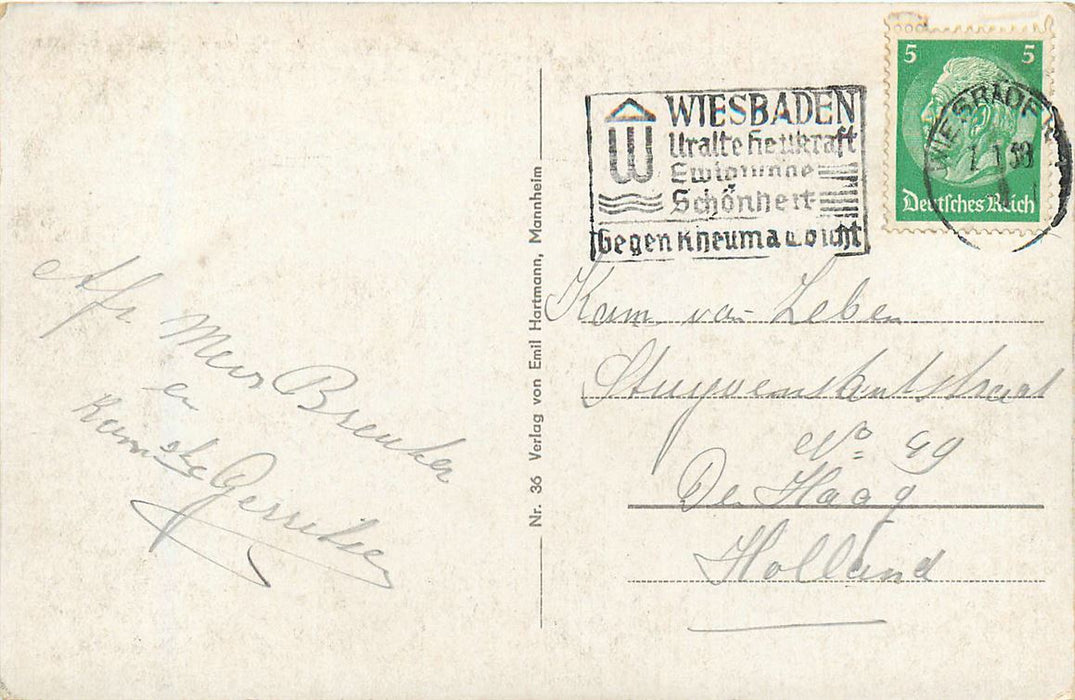 Afz.
Mevr Breuker
en
Gerritsen
Nr. 36 Verlag von Emil Hartmann, Mannheim
WIESBADEN
Uralte Heilkraft
Ewigjunge
Schönheit
Gegen Rheuma u. Gicht
5 5
Deutsches Reich
WIESBADEN
Fam. van Leben
Stuyvesantstraat
No 49
Den Haag
Holland